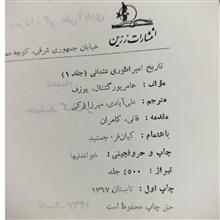 انتشارات زرین
خیابان جمهوری شرقی، کوچه
تاریخ امپراطوری عثمانی (جلد ۱)
مؤلف: هامرپورگشتال، یوزف
مترجم: علی‌آبادی، میرزا زکی
مقدمه: فانی، کامران
باهتمام: کیان‌فر، جمشید
چاپ و حروفچینی: خواندنیها
تیراژ: ۴۵۰۰ جلد
چاپ اول: تابستان ۱۳۶۷
حق چاپ محفوظ است